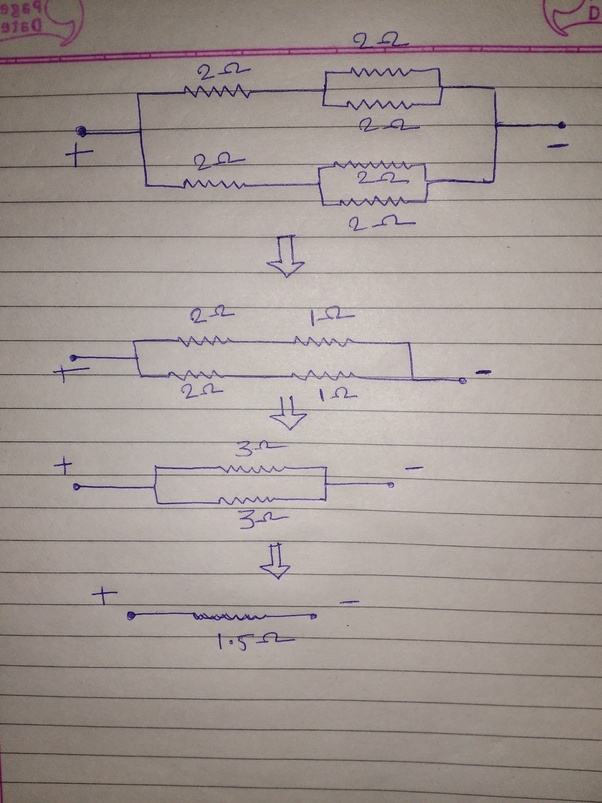 Page
Date
D
2Ω
2Ω
2Ω
+
-
2Ω
2Ω
2Ω
2Ω 1Ω
+
-
2Ω 1Ω
3Ω
+ -
3Ω
+ -
1.5Ω